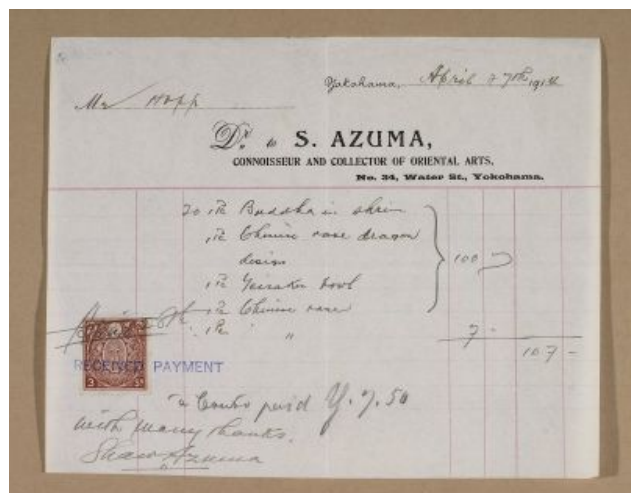 Yokohama, April 27th 1914
Mr Hopp
Dr. to S. AZUMA,
CONNOISSEUR AND COLLECTOR OF ORIENTAL ARTS,
No. 34, Water St., Yokohama.
To 1 Pc Buddha in shrin
1 Pc Chinese vase dragon
design 100
1 Pc bowl
1 Pc Chinese vase
1 Pc " 7 -
107 -
April 28th
3 Sn
RECEIVED PAYMENT
paid Y. 7.50
with many thanks.
Azuma